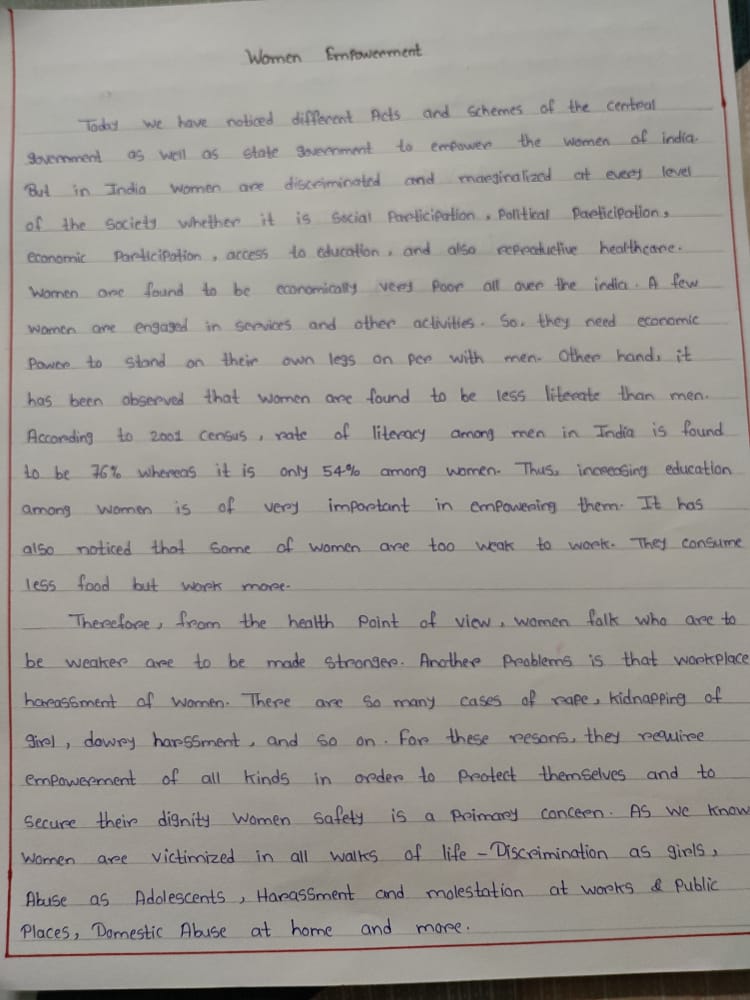 Women Empowerment
Today we have noticed different Acts and schemes of the central
government as well as state government to empower the women of india.
But in India women are discriminated and marginalized at every level
of the society whether it is social participation, political participation,
economic participation, access to education, and also reproductive healthcare.
Women are found to be economically very poor all over the india. A few
women are engaged in services and other activities. So, they need economic
power to stand on their own legs on per with men. Other hand, it
has been observed that women are found to be less literate than men.
According to 2001 census, rate of literacy among men in India is found
to be 76% whereas it is only 54% among women. Thus, increasing education
among women is of very important in empowering them. It has
also noticed that some of women are too weak to work. They consume
less food but work more.
Therefore, from the health point of view, women folk who are to
be weaker are to be made stronger. Another problems is that workplace
harassment of women. There are so many cases of rape, kidnapping of
girl, dowry harssment, and so on. For these resons, they require
empowerment of all kinds in order to protect themselves and to
secure their dignity women safety is a primary concern. As we know
women are victimized in all walks of life - Discrimination as girls,
Abuse as Adolescents, Harassment and molestation at works & public
places, Domestic Abuse at home and more.